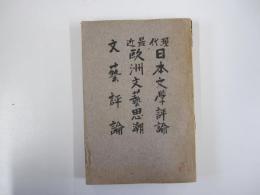 現代日本文學評論
最近歐洲文藝思潮
文藝評論